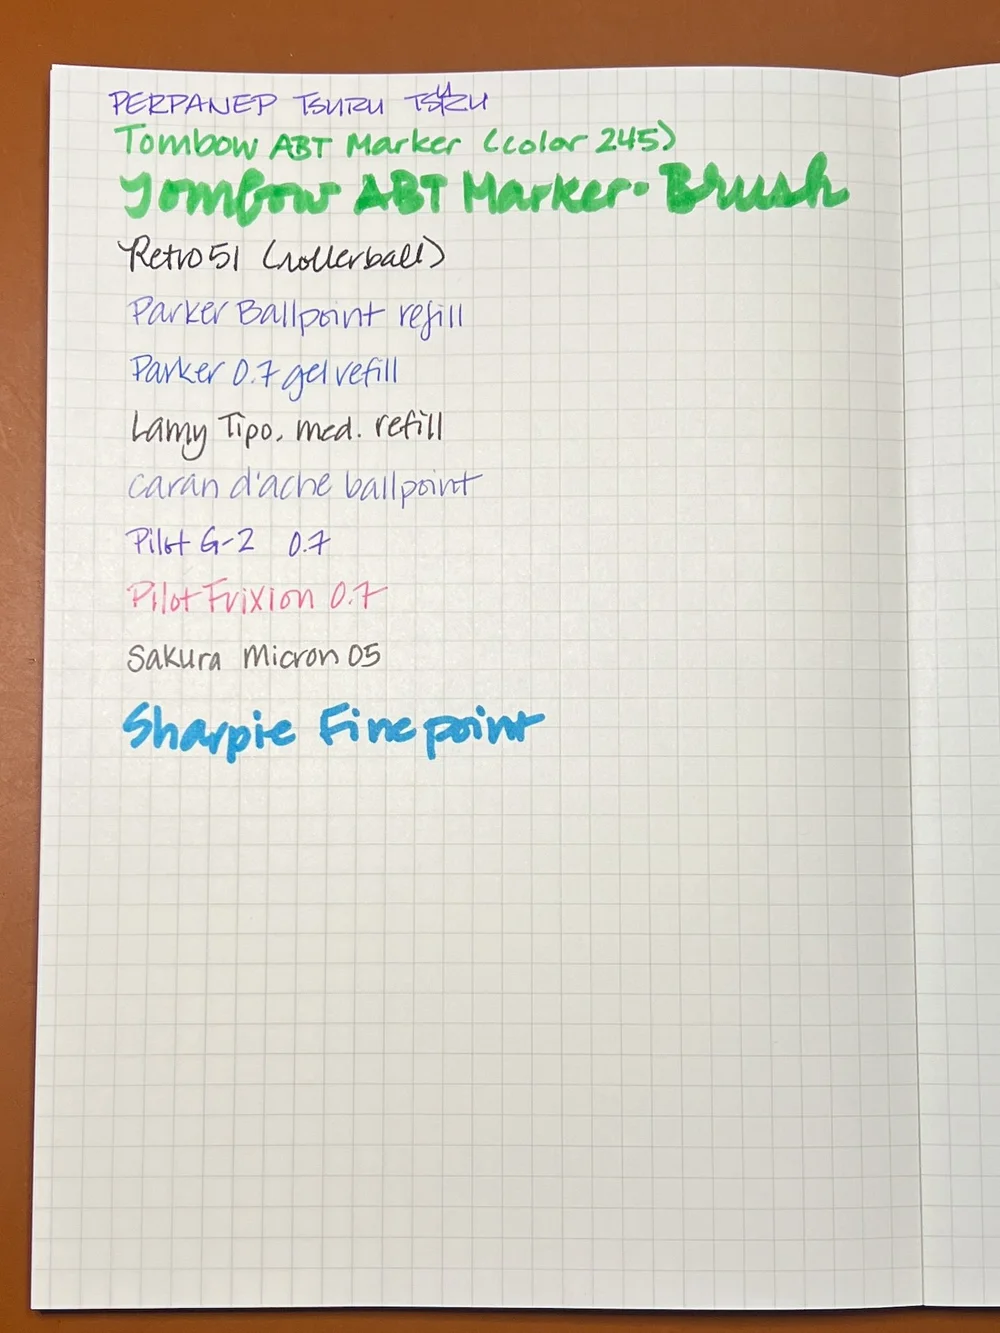 PERPANEP TSURU TSURU
Tombow ABT Marker (color 245)
Tombow ABT Marker - Brush
Retro 51 (rollerball)
Parker Ballpoint refill
Parker 0.7 gel refill
Lamy Tipo, med. refill
caran d'ache ballpoint
Pilot G-2 0.7
Pilot Frixion 0.7
Sakura Micron 05
Sharpie Fine point